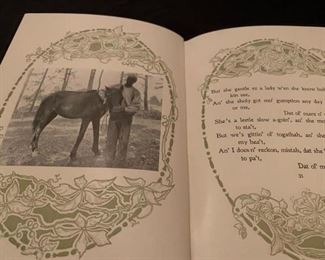 But she gentle ez a lady w'en she know huh
kin see,
An' she sholy got mo' gumption any day
or me,
Dat ol' mare o'
She's a leetle slow a-goin', an' she mo
to sta't,
But we's gittin' ol' togathah, an' she's
my hea't,
An' I doesn' reckon, mistah, dat she
to pa't,
Dat ol' m